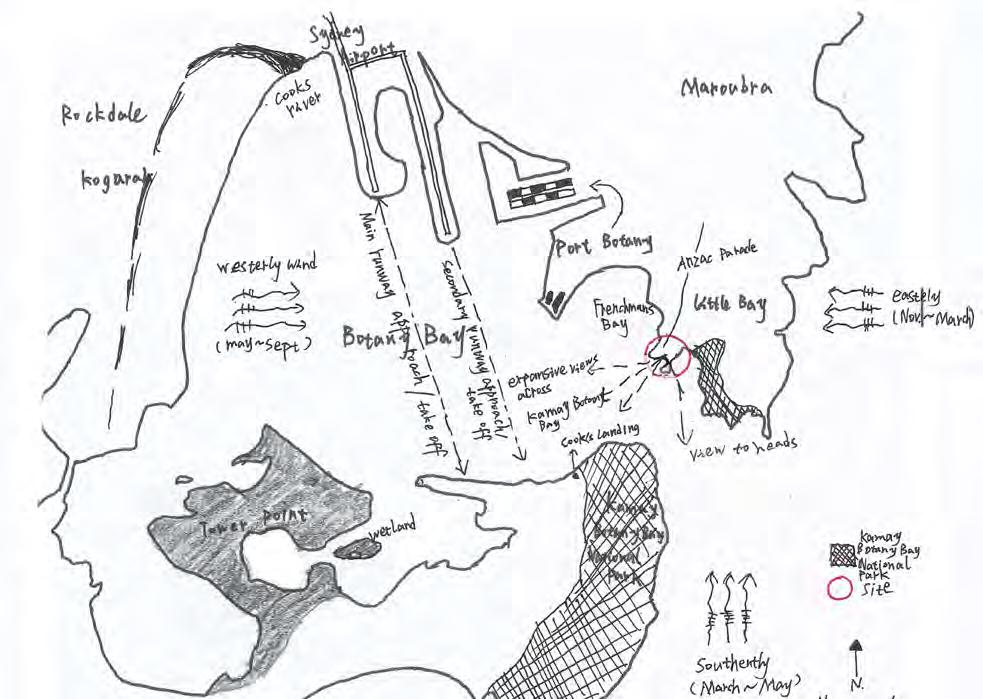 Sydney
Airport
Cooks
River
Rockdale
Kogarah
Maroubra
Port Botany
Anzac Parade
Little Bay
Frenchmans
Bay
Westerly wind
(May~Sept)
Eastely
(Nov.~March)
Botany Bay
Main runway approach/take off
Secondary runway approach/
take off
expansive views
across
Kamay Botany
Bay
Cook's Landing
View to heads
Tower Point
Wetland
Kamay
Botany Bay
National
Park
Kamay
Botany Bay
National
Park
Site
Southernly
(March~May)
N.